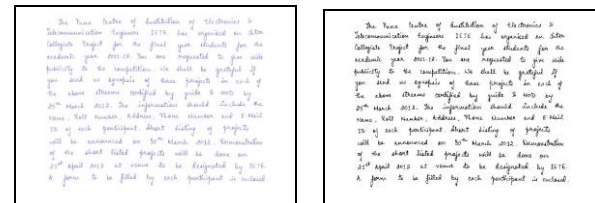 The Pune Centre of Institution of Electronics &
Telecommunication Engineers IETE has organised an Inter
Collegiate Project for the final year students for the
academic year 2011-12. You are requested to give wide
publicity to the competition. We shall be grateful if
you send us synopsis of these projects in each of
the above streams certified by guide & HOD by
25th March 2012. The information should include the
Name, Roll Number, Address, Phone Number and E-Mail
ID of each participant. Short listing of projects
will be announced on 30th March 2012. Demonstration
of the short listed projects will be done on
21st April 2012 at venue to be designated by IETE.
A form to be filled by each participant is enclosed.
The Pune Centre of Institution of Electronics &
Telecommunication Engineers IETE has organised an Inter
Collegiate Project for the final year students for the
academic year 2011-12. You are requested to give wide
publicity to the competition. We shall be grateful if
you send us synopsis of these projects in each of
the above streams certified by guide & HOD by
25th March 2012. The information should include the
Name, Roll Number, Address, Phone Number and E-Mail
ID of each participant. Short listing of projects
will be announced on 30th March 2012. Demonstration
of the short listed projects will be done on
21st April 2012 at venue to be designated by IETE.
A form to be filled by each participant is enclosed.